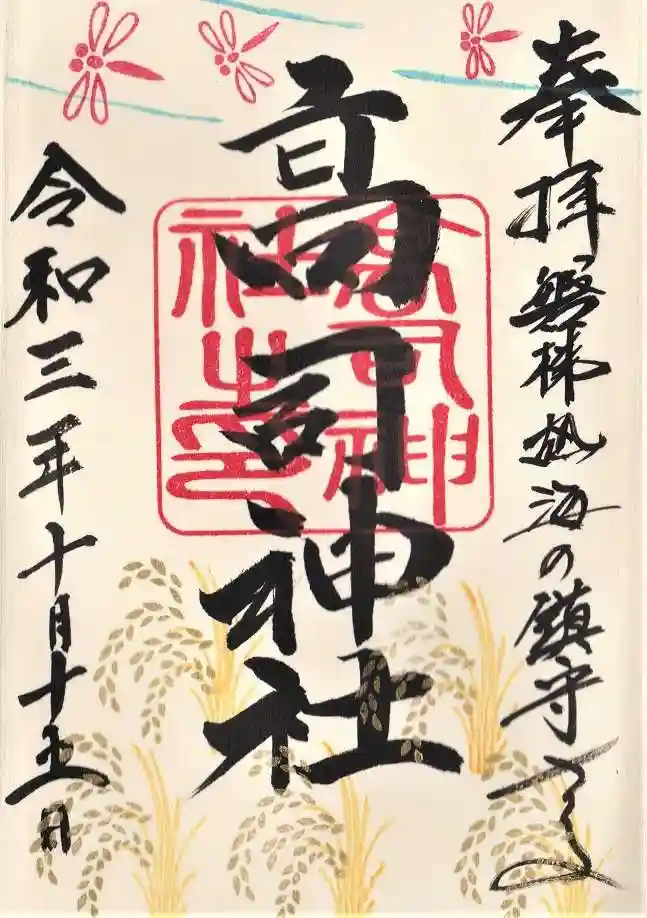 奉拝 磐梯熱海の鎮守
高司神社
高司神
社之印
令和三年十月十五日